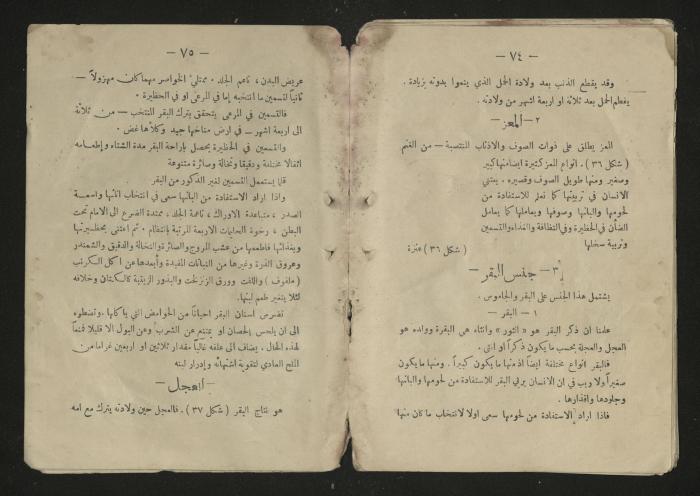 — ٧٤ —
وقد يقطع الذنب بعد ولادة الحمل الذي ينموا بدونه زيادة .
يفطم الحمل بعد ثلاثة او اربعة اشهر من ولادته .
٢ - المعز
المعز يطلق على ذوات الصوف والاذناب المنتصبة — من الغنم
( شكل ٣٦ ) . انواع المعز كثيرة ايضاً منها كبير
وصغير ومنها طويل الصوف وقصيره . يعتني
الانسان في تربيتها كما تعلم للاستفادة من
لحومها والبانها وصوفها ويعاملها كما يعامل
الضأن في الحظيرة وفي النظافة والغذاء والتسمين
وتربية سخلها
( شكل ٣٦ ) عنزة
٣ - جنس البقر
يشتمل هذا الجنس على البقر والجاموس .
١ - البقر -
علمنا ان ذكر البقر هو « الثور » وانثاه هي البقرة وولده هو
العجل والعجلة بحسب ما يكون ذكراً او انثى .
فالبقر انواع مختلفة ايضاً اذ منها ما يكون كبيراً . ومنها ما يكون
صغيراً ولا ريب في ان الانسان يربي البقر للاستفادة من لحومها والبانها
وجلودها واقذارها .
فاذا اراد الاستفادة من لحومها سعى اولا لانتخاب ما كان منها
— ٧٥ —
عريض البدن ، ناعم الجلد . ممتلئ الخواصر مهما كان مهزولاً —
ثانياً لتسمين ما انتخبه إما في المرعى او في الحظيرة .
فالتسمين في المرعى يتحقق بترك البقر المنتخب — من ثلاثة
الى اربعة اشهر — في ارض مناخها جيد وكلأها غض .
والتسمين في الحظيرة يحصل باراحة البقر مدة الشتاء وإطعامه
اثفالا مختلفة ودقيقا ونخالة وصائرة متنوعة
قلما يستعمل التسمين لغير الذكور من البقر
واذا اراد الاستفادة من البانها سعى في انتخاب اناثها واسعة
الصدر ، متباعدة الاوراك ، ناعمة الجلد . ممتدة الضرع الى الامام تحت
البطن ، رخوة الحلمات الاربعة المرتبة بانتظام . ثم اعتنى بحظيرتها
وبغذائها فاطعمها من عشب المروج والصائر والنخالة والدقيق والشمندر
وعروق الذرة وغيرها من النباتات المفيدة وأبعدها عن اكل الكرنب
( ملفوف ) واللفت وورق الزنزلخت والبذور الزيتية كالكتان وخلافه
لئلا يتغير طعم لبنها .
تضرس اسنان البقر احياناً من الحوامض التي ياكلها . وتضطره
الى ان يلحس الحصان او يمتنع عن الشرب وعن البول الا قليلا فمنعاً
لهذه الحال . يضاف الى علفه غالباً مقدار ثلاثين او اربعين غراما من
الملح العادي لتقوية اشتهائه وإدرار لبنه
— العجل —
هو نتاج البقر ( شكل ٣٧ ) . فالعجل حين ولادته يترك مع امه